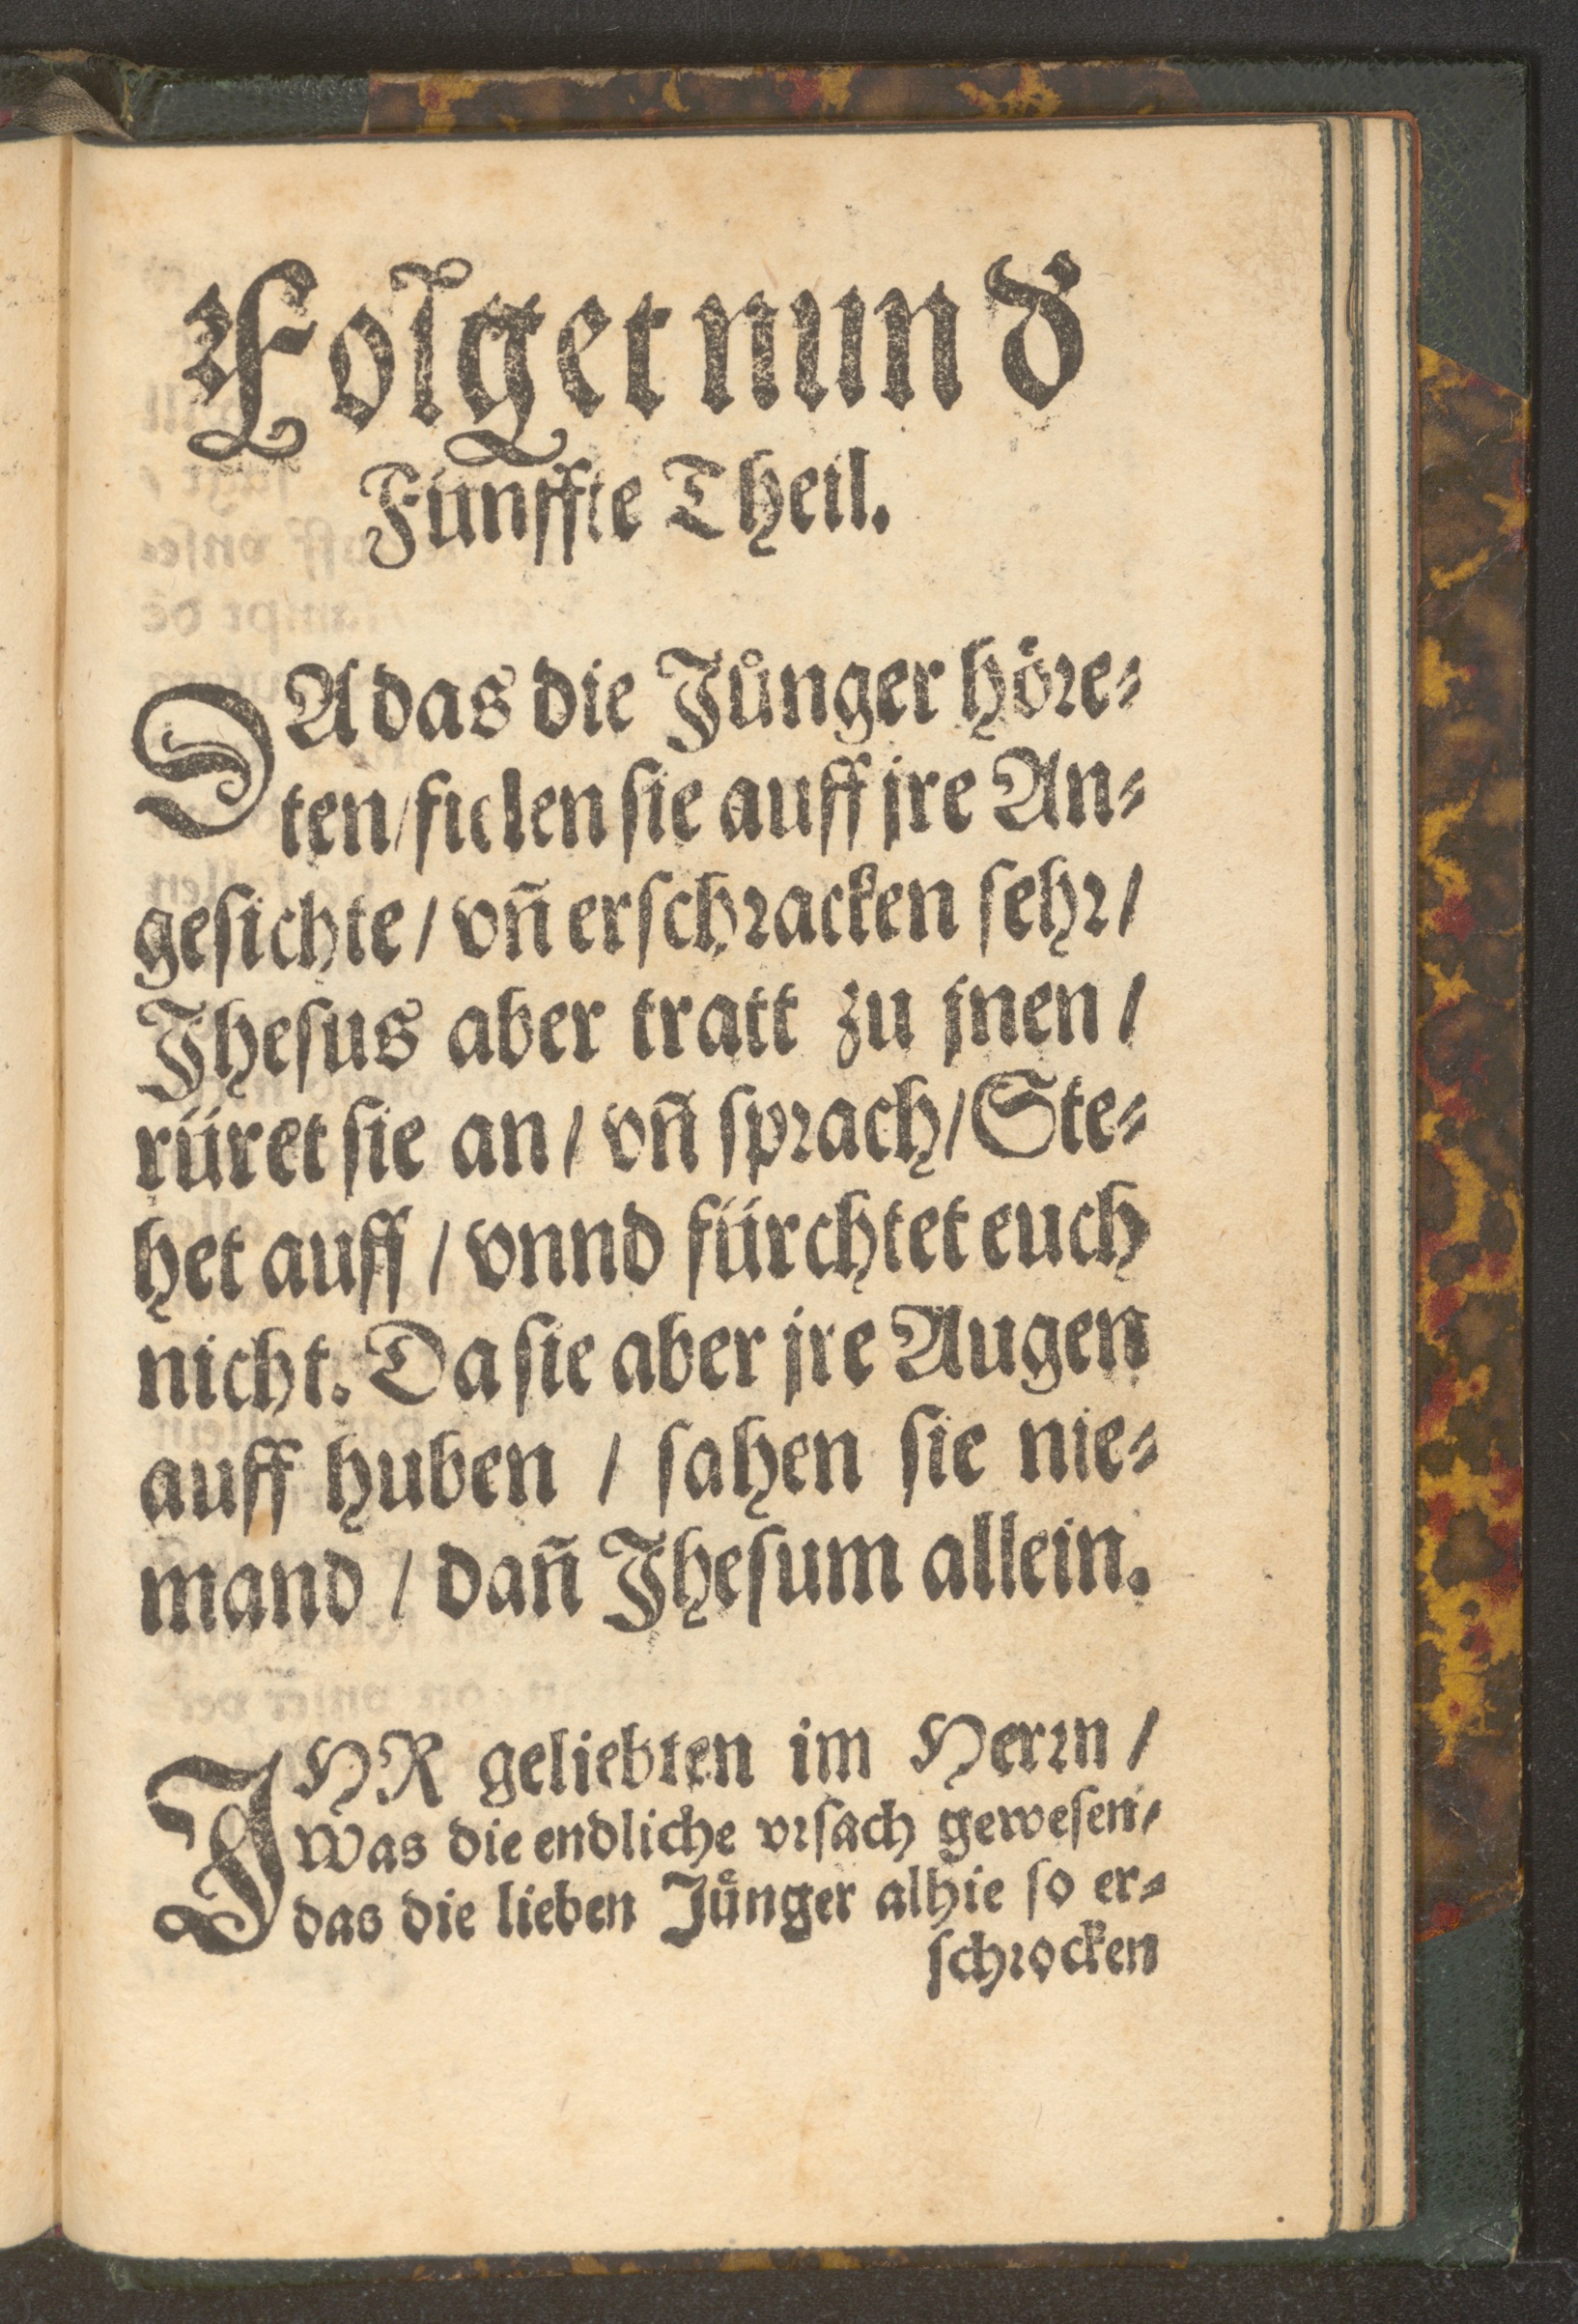 Folget nun d̕
Fünffte Theil.
DA das die Jůnger höre⸗
ten/fielen sie auff jre An⸗
gesichte / vñ erschracken sehr /
Jhesus aber tratt zu jnen /
rüret sie an / vñ sprach / Ste⸗
het auff / vnnd fürchtet euch
nicht. Da sie aber jre Augen
auff huben / sahen sie nie⸗
mand / dañ Jhesum allein.
JHR geliebten im Herrn /
Was die endliche vrsach gewesen/
das die lieben Jůnger alhie so er⸗
schrocken